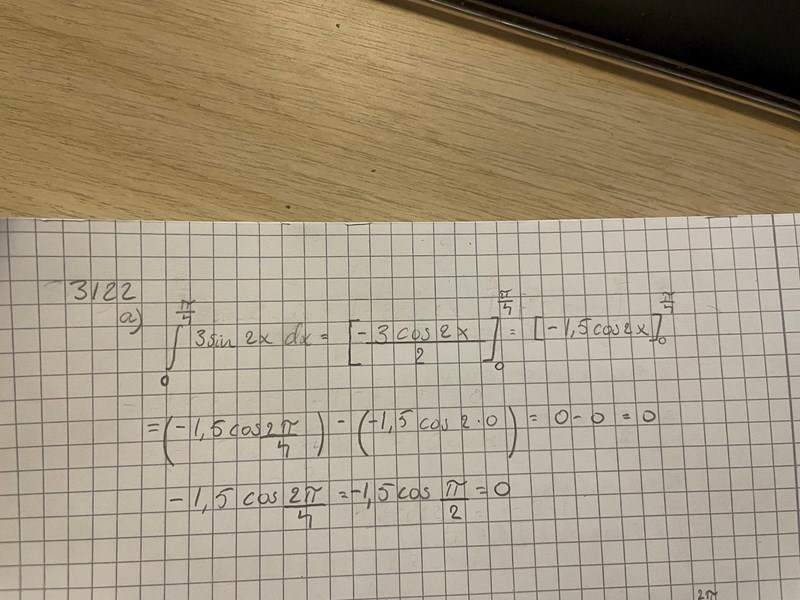 3122
a) ∫₀^(π/4) 3 sin 2x dx = [-3 cos 2x / 2]₀^(π/4) = [-1,5 cos 2x]₀^(π/4)
= (-1,5 cos 2π/4) - (-1,5 cos 2·0) = 0 - 0 = 0
-1,5 cos 2π/4 = -1,5 cos π/2 = 0
2π